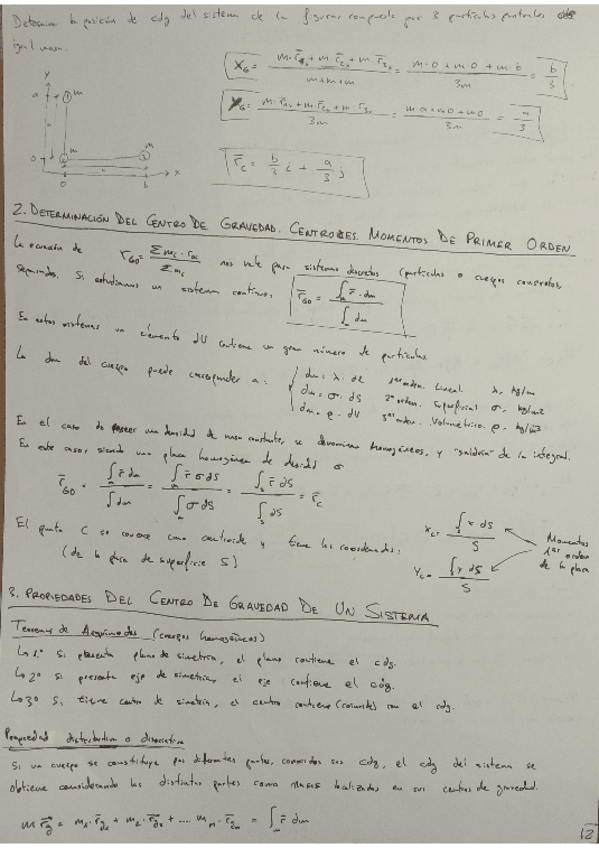 Determina la posición de cdg del sistema de la figura compuesto por 3 partículas puntuales de
igual masa.
X_G = (m·r̄_1x + m·r̄_2x + m·r̄_3x)/(m+m+m) = (m·0+m·0+m·b)/3m = b/3
Y_G = (m·r̄_1y + m·r̄_2y + m·r̄_3y)/3m = (m·a+m·0+m·0)/3m = a/3
r̄_C = b/3 i + a/3 j
y
a 1 m
a
m m
0 2 3 x
b
0 b
2. DETERMINACIÓN DEL CENTRO DE GRAVEDAD. CENTROIDES. MOMENTOS DE PRIMER ORDEN
La ecuación de r_GO = Σm_i·r_oi / Σm_i nos vale para sistemas discretos (partículas o cuerpos concretos,
separados. Si estudiamos un sistema continuo, r̄_GO = ∫_m r̄·dm / ∫_m dm
En estos sistemas un elemento dV contiene un gran número de partículas
La dm del cuerpo puede corresponder a:
dm = λ·dl 1er orden. Lineal λ. kg/m
dm = σ·dS 2º orden. Superficial σ. kg/m2
dm = ρ·dV 3er orden. Volumétrico. ρ. kg/m3
En el caso de poseer una densidad de masa constante, se denominan homogéneos, y "saldría" de la integral.
En este caso, siendo una placa homogénea de densidad σ
r̄_GO = ∫_m r̄ dm / ∫ dm = ∫_m r̄ σ dS / ∫_m σ dS = ∫_S r̄ dS / ∫_S dS = r̄_C
El punto C se conoce como centroide y tiene las coordenadas:
(de la placa de superficie S)
x_C = ∫_S x dS / S
y_C = ∫_S y dS / S
Momentos
1er orden
de la placa
3. PROPIEDADES DEL CENTRO DE GRAVEDAD DE UN SISTEMA
Teoremas de Arquímedes (cuerpos homogéneos)
↳ 1º Si presenta plano de simetría, el plano contiene el cdg.
↳ 2º si presenta eje de simetría, el eje contiene el cdg.
↳ 3º Si tiene centro de simetría, el centro contiene (coincide) con el cdg.
Propiedad distributiva o asociativa
Si un cuerpo se constituye por diferentes partes, conocidos sus cdg, el cdg del sistema se
obtiene considerando las distintas partes como masas localizadas en sus centros de gravedad.
m r̄_g = m_1·r̄_g1 + m_2·r̄_g2 + .... m_n·r̄_gn = ∫_m r̄ dm
12